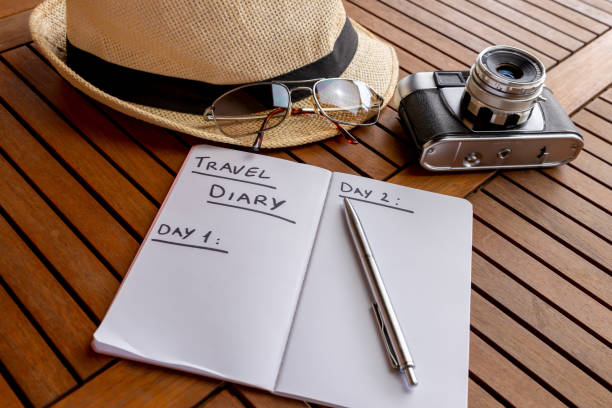 TRAVEL
DIARY
DAY 1:
DAY 2: